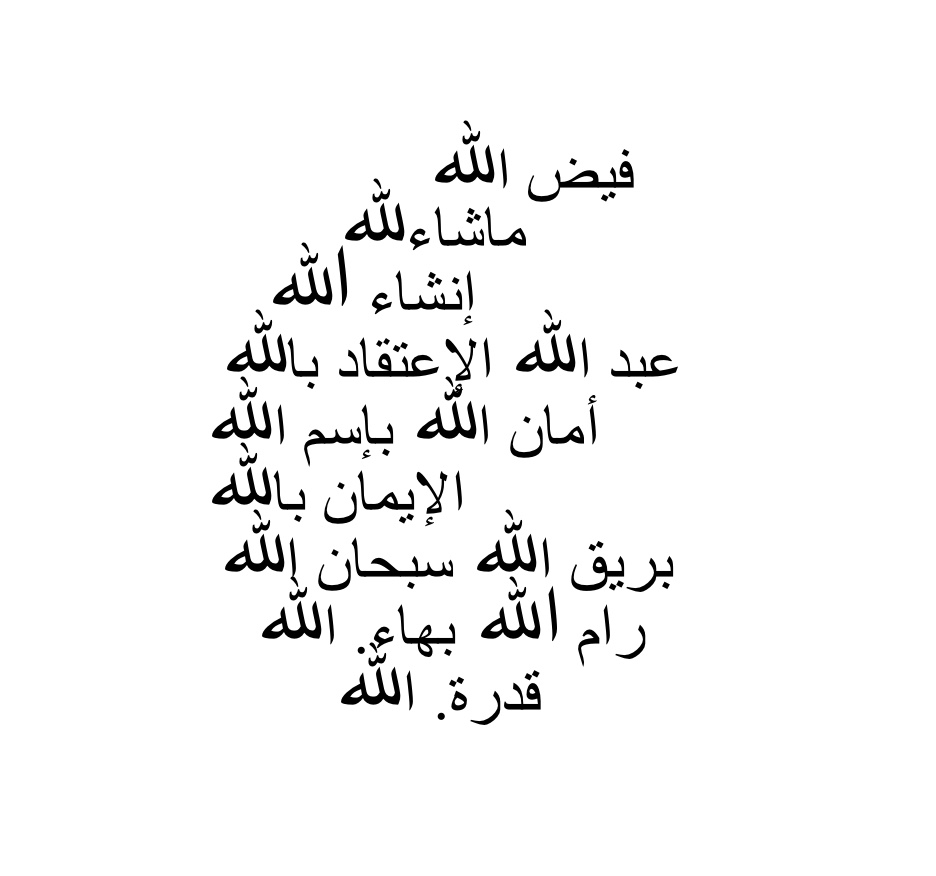 فيض الله
ماشاءلله
إنشاء الله
عبد الله الإعتقاد بالله
أمان الله بإسم الله
الإيمان بالله
بريق الله سبحان الله
رام الله بهاء. الله
قدرة. الله